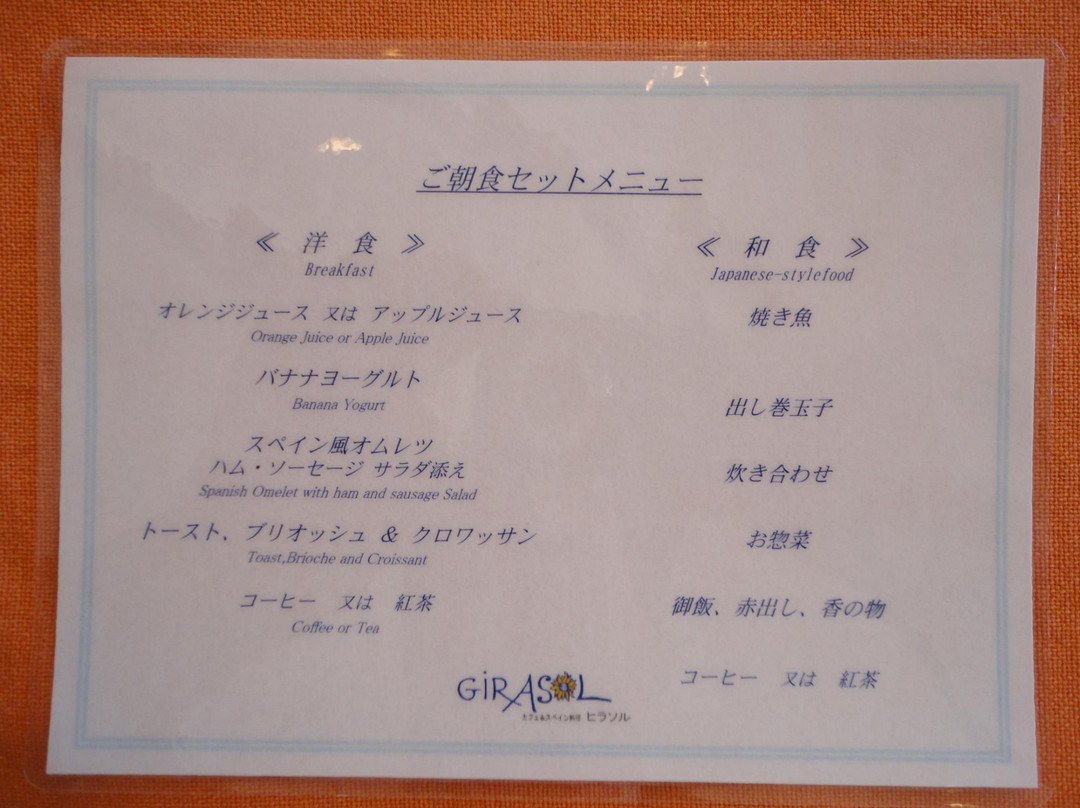 ご朝食セットメニュー
≪ 洋 食 ≫
Breakfast
オレンジジュース 又は アップルジュース
Orange Juice or Apple Juice
バナナヨーグルト
Banana Yogurt
スペイン風オムレツ
ハム・ソーセージ サラダ添え
Spanish Omelet with ham and sausage Salad
トースト, ブリオッシュ & クロワッサン
Toast,Brioche and Croissant
コーヒー 又は 紅茶
Coffee or Tea
≪ 和 食 ≫
Japanese-stylefood
焼き魚
出し巻玉子
炊き合わせ
お惣菜
御飯、赤出し、香の物
コーヒー 又は 紅茶
GiRASOL
カフェ&スペイン料理 ヒラソル